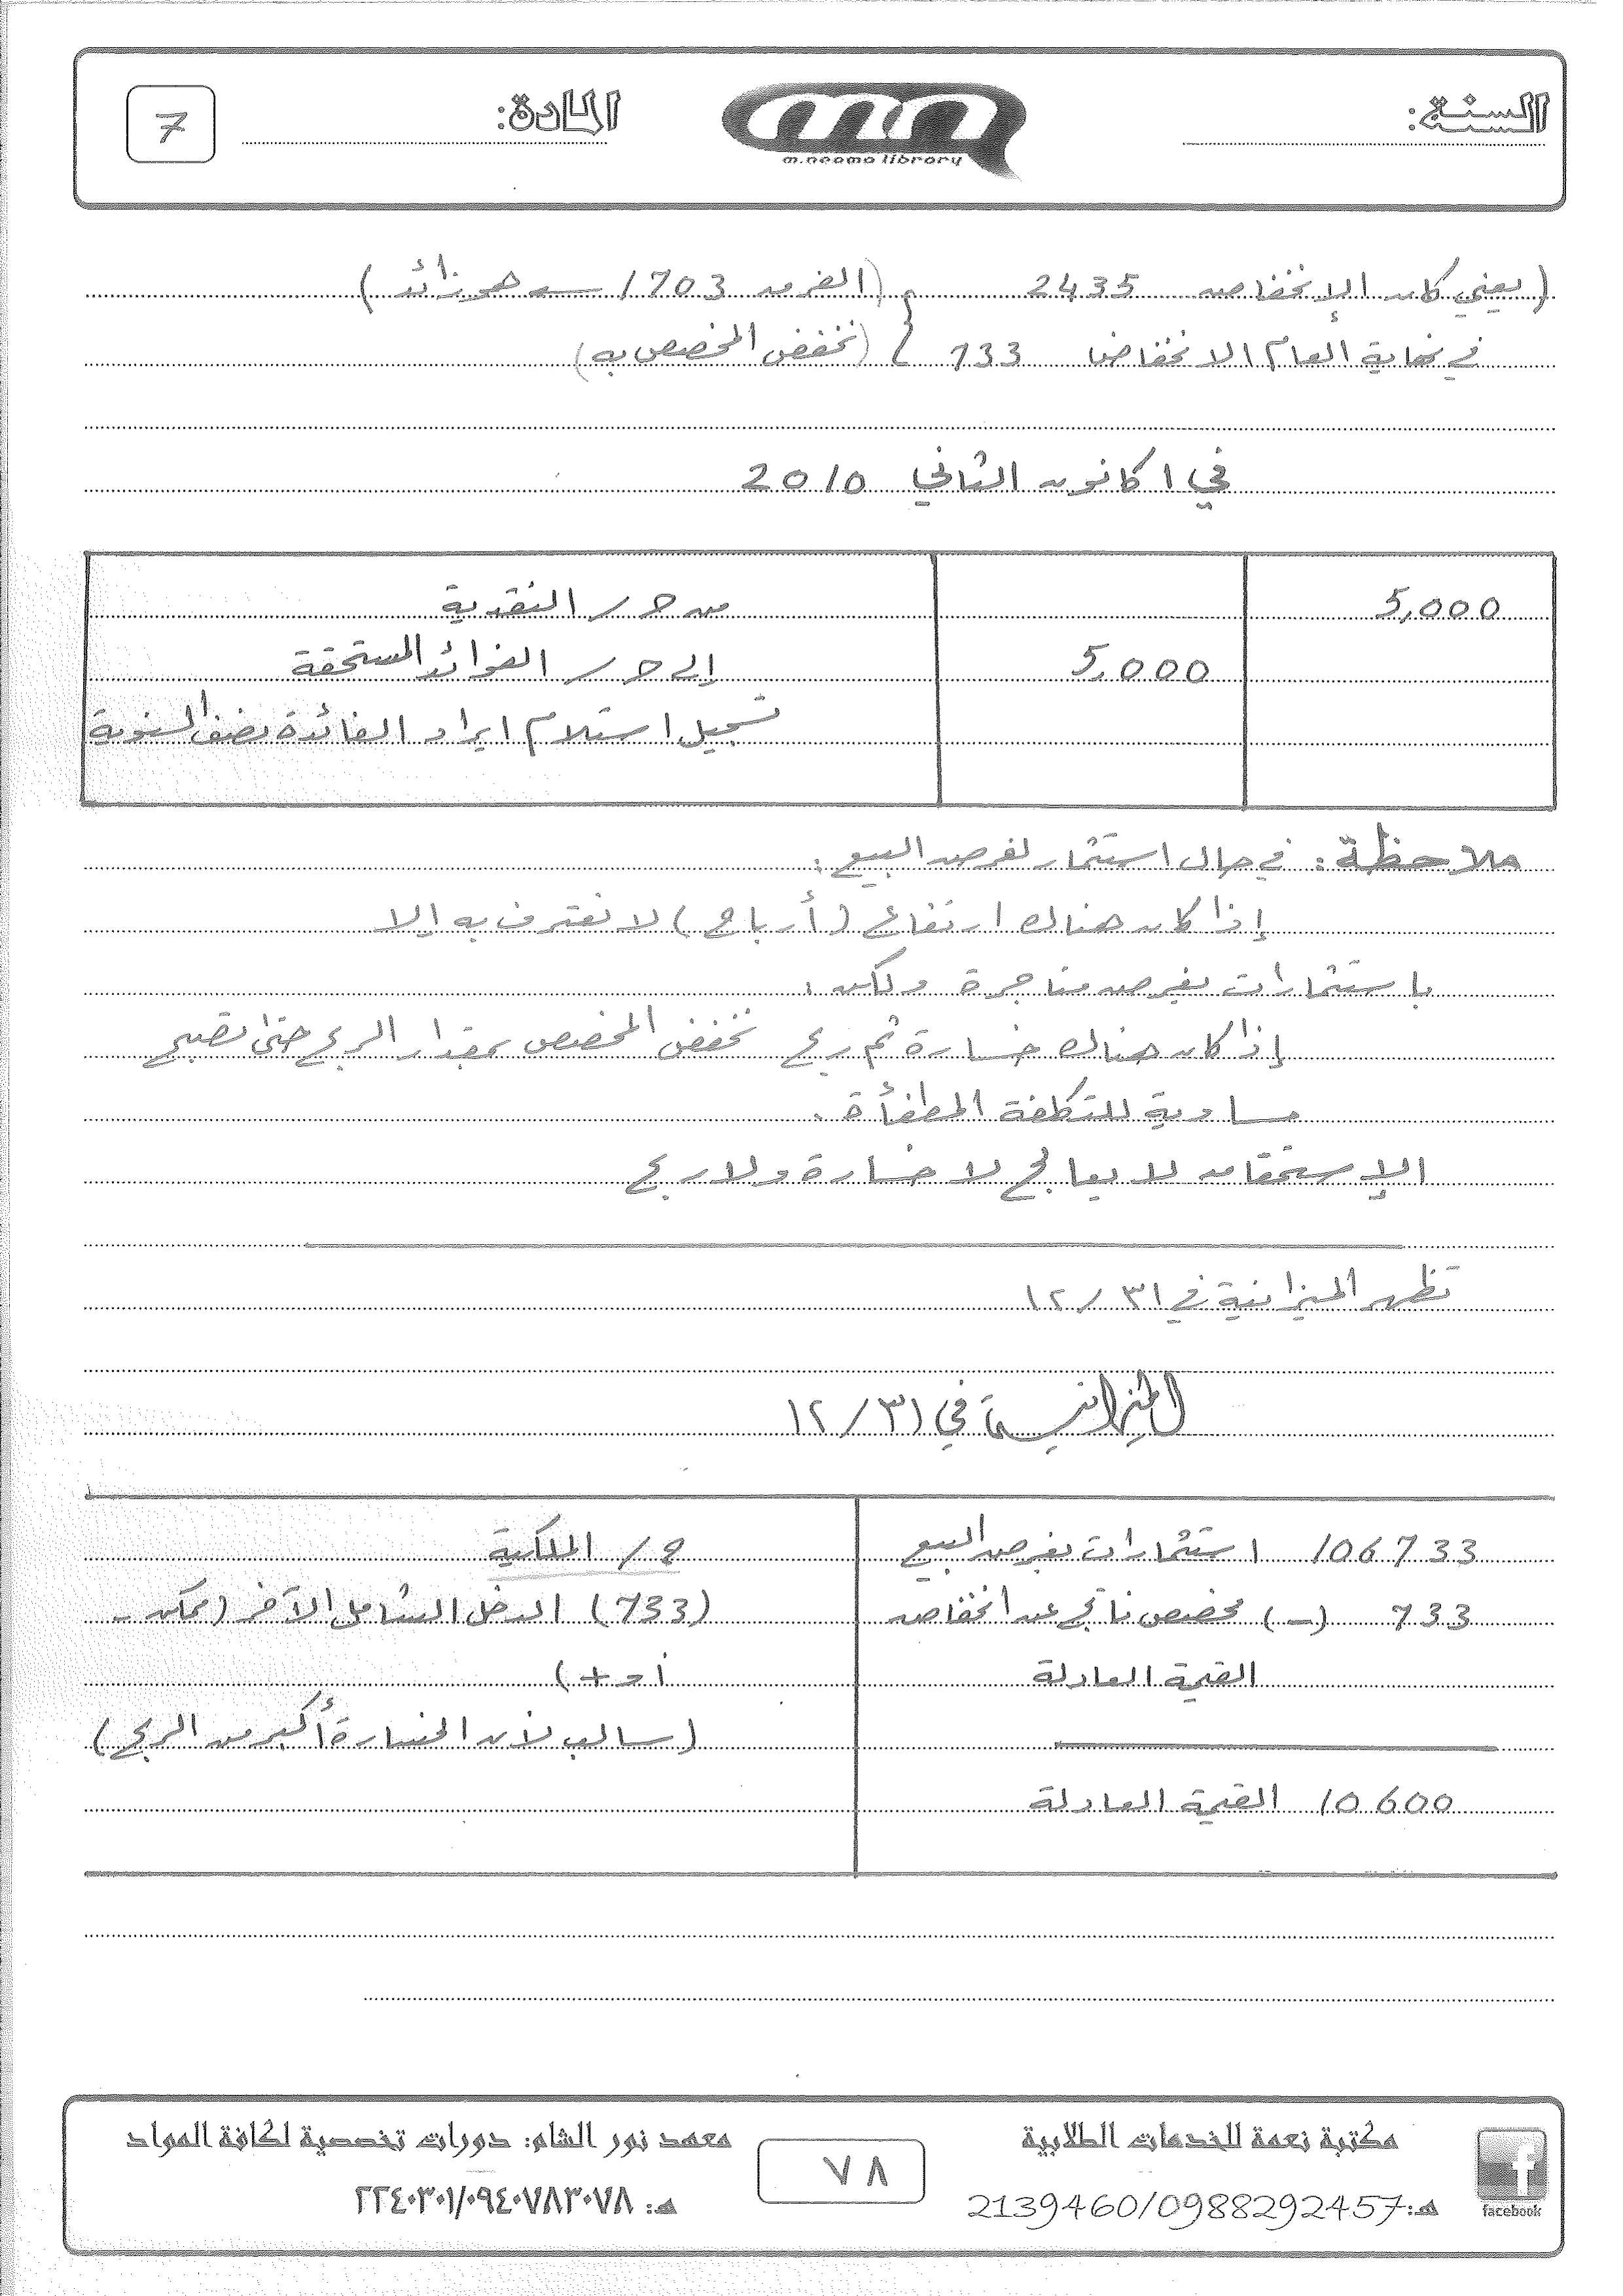 السنة:
m.neama library
المادة:
7
(يعني كان الإنخفاض 2435 (الفرق 1703 ← هو زائد)
في نهاية العام الانخفاض 733 (نخفض المخصص به)
في 1 كانون الثاني 2010
5,000 من حـ/ النقدية
5,000 إلى حـ/ الفوائد المستحقة
تسجيل استلام ايراد الفائدة نصف السنوية
ملاحظة: في حال استثمار لغرض البيع:
إذا كان هناك ارتفاع (أرباح) لا نعترف به إلا
باستثمارات بغرض متاجرة ولكن:
إذا كان هناك خسارة ثم ربح نخفض المخصص بمقدار الربح حتى تصبح
مساوية للتكلفة المطفأة.
الإستحقاق لا يعالج لا خسارة ولا ربح
تظهر الميزانية في ٣١/١٢
الميزانية في ٣١/١٢
106733 استثمارات بغرض البيع
733 (-) مخصص ناتج عن انخفاض
القيمة العادلة
10600 القيمة العادلة
ح/ الملكية
(733) الدخل الشامل الآخر (ممكن -
أو +)
(سالب لأن الخسارة أكبر من الربح)
facebook
مكتبة نعمة للخدمات الطلابية
هـ: 2139460/0988292457
٧٨
معهد نور الشام: دورات تخصصية لكافة المواد
هـ: ٢٢٤٠٣٠١/٠٩٤٠٧٨٣٠٧٨